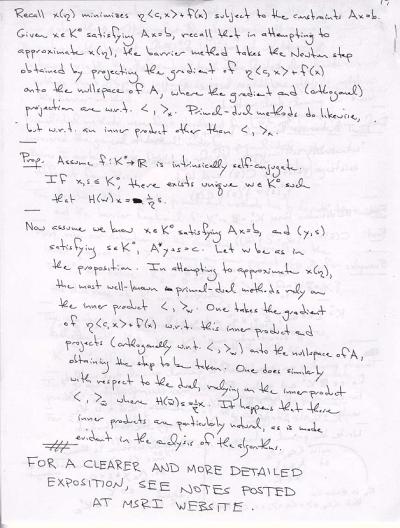 Recall x(η) minimizes η<c,x>+f(x) subject to the constraints Ax=b.
Given x∈K° satisfying Ax=b, recall that in attempting to
approximate x(η), the barrier method takes the Newton step
obtained by projecting the gradient of η<c,x>+f(x)
onto the nullspace of A, where the gradient and (orthogonal)
projection are w.r.t. < , >ₓ. Primal-dual methods do likewise,
but w.r.t. an inner product other than < , >ₓ.
Prop. Assume f:K°→ℝ is intrinsically self-conjugate.
If x,s∈K°, there exists unique w∈K° such
that H(w)x = 1/η s.
Now assume we know x∈K° satisfying Ax=b, and (y,s)
satisfying s∈K°, A*y+s=c. Let w be as in
the proposition. In attempting to approximate x(η),
the most well-known primal-dual methods rely on
the inner product < , >_w. One takes the gradient
of η<c,x>+f(x) w.r.t. this inner product and
projects (orthogonally w.r.t. < , >_w) onto the nullspace of A,
obtaining the step to be taken. One does similarly
with respect to the dual, relying on the inner product
< , > where H( )s= x. It happens that these
inner products are particularly natural, as is made
evident in the analysis of the algorithms.
FOR A CLEARER AND MORE DETAILED
EXPOSITION, SEE NOTES POSTED
AT MSRI WEBSITE.